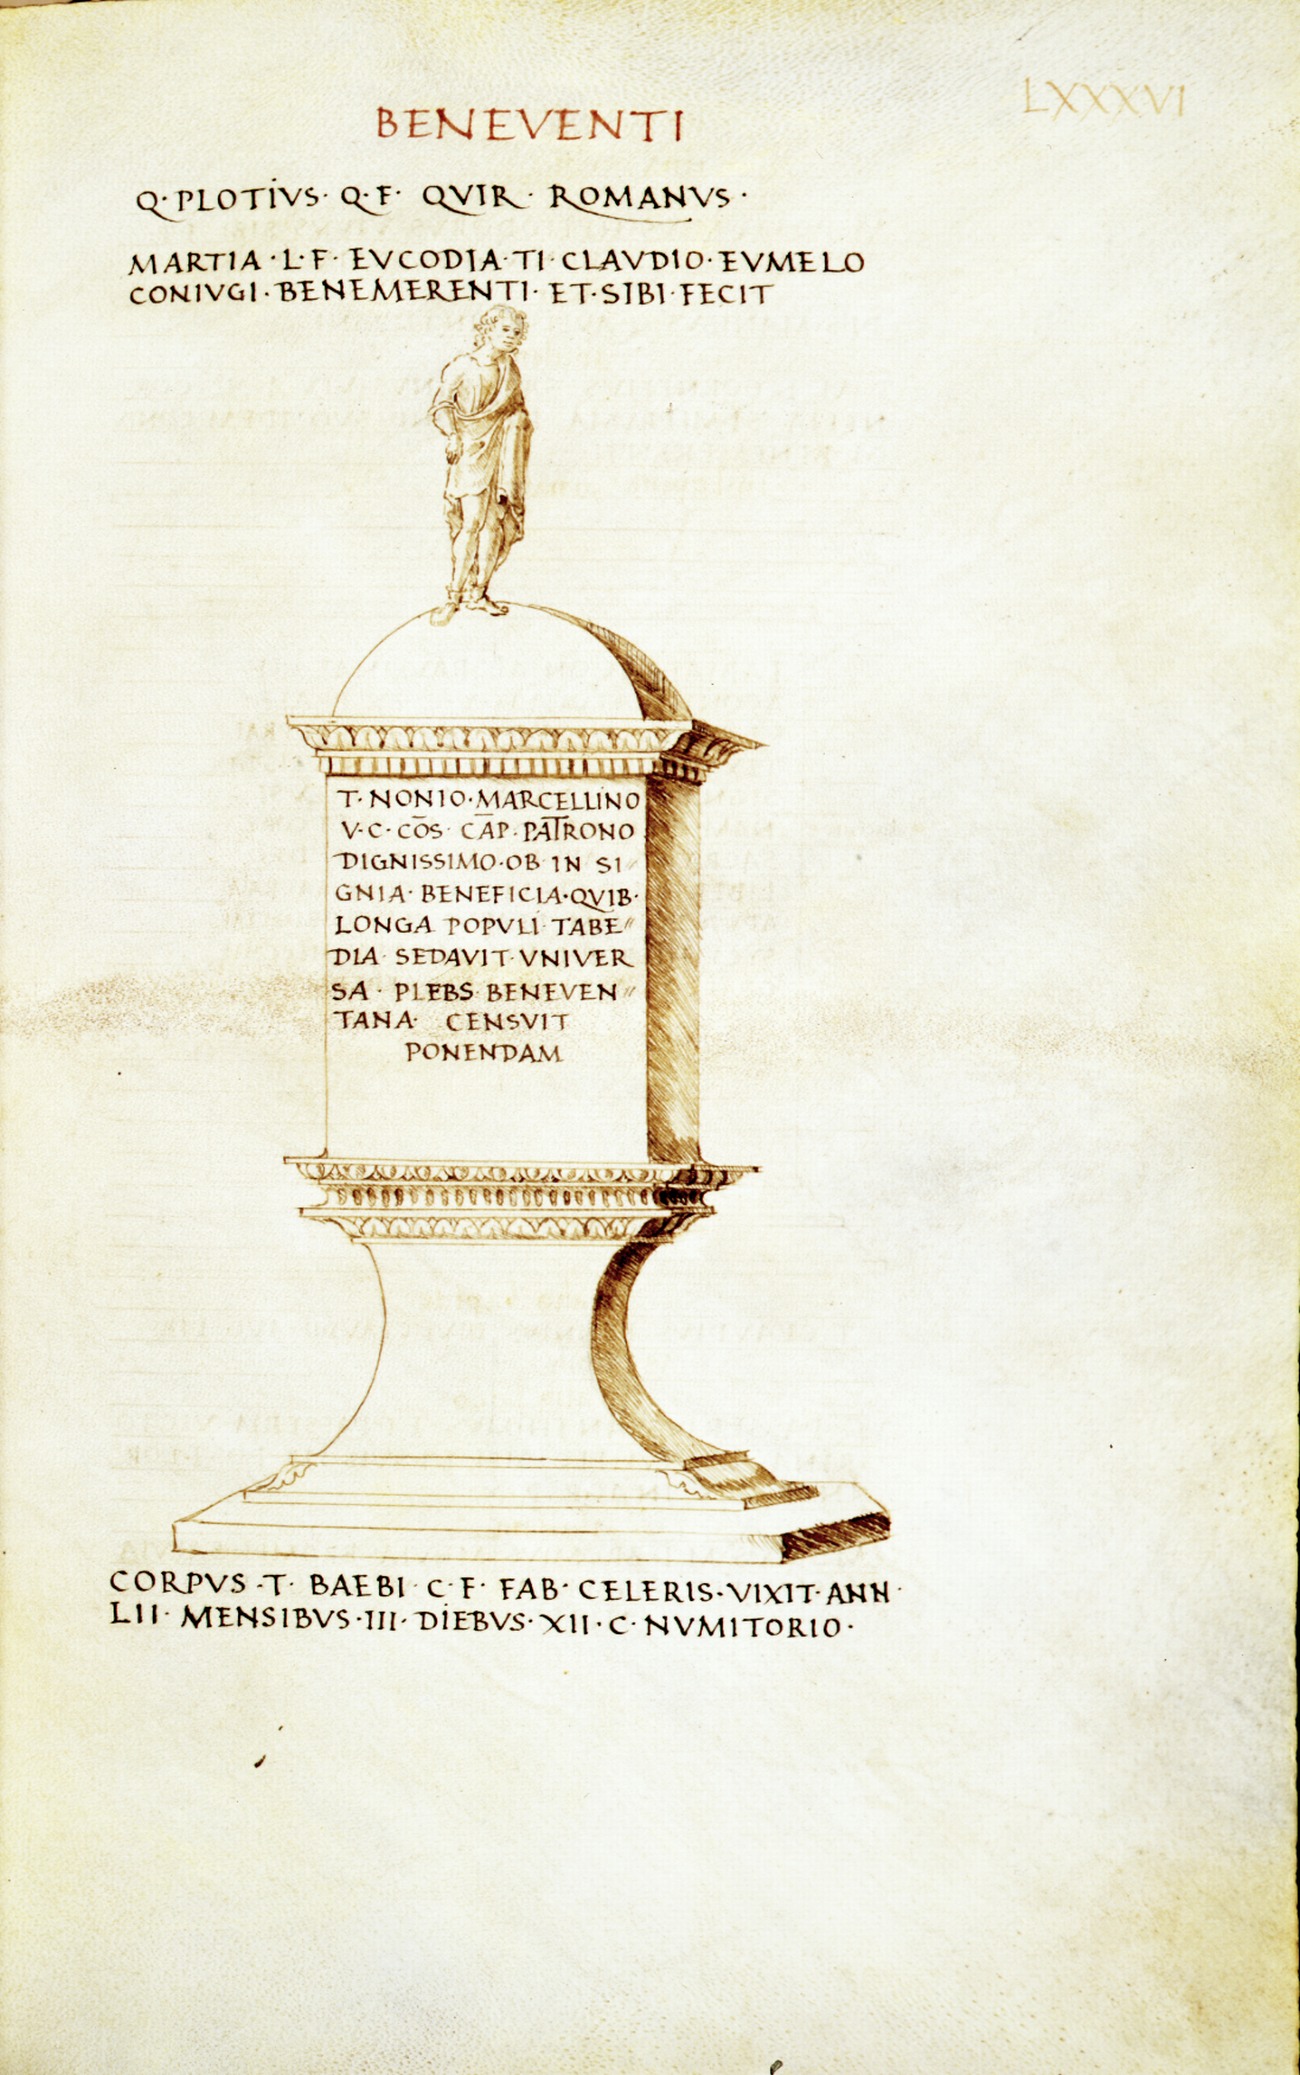 LXXXVI
BENEVENTI
Q·PLOTIVS·Q·F· QVIR· ROMANVS·
MARTIA·L·F·EVCODIA·TI·CLAVDIO·EVMELO
CONIVGI·BENEMERENTI·ET·SIBI·FECIT
T·NONIO·MARCELLINO
V·C·CŌS·CĀP·PAT̄RONO
DIGNISSIMO·OB IN SI
GNIA·BENEFICIA·QVIB·
LONGA POPVLI TABE〃
DIA SEDAVIT·VNIVER
SA· PLEBS BENEVEN〃
TANA· CENSVIT
PONENDAM
CORPVS·T· BAEBI C·F· FAB·CELERIS·VIXIT·ANN·
LII·MENSIBVS·III·DIEBVS·XII·C·NVMITORIO·